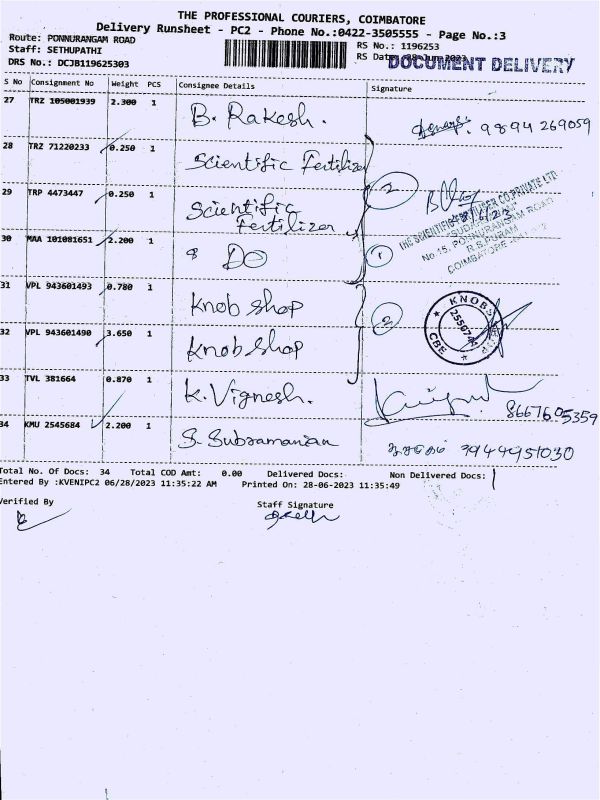 THE PROFESSIONAL COURIERS, COIMBATORE
Delivery Runsheet - PC2 - Phone No.:0422-3505555 - Page No.:3
Route: PONNURANGAM ROAD
Staff: SETHUPATHI
DRS No.: DCJB119625303
RS No.: 1196253
RS Date: 28-Jun-2023
DOCUMENT DELIVERY
S No Consignment No Weight PCS Consignee Details Signature
27 TRZ 105001939 2.300 1 B. Rakesh. 9894 269059
28 TRZ 71220233 0.250 1 Scientific Fertilizer
29 TRP 4473447 0.250 1 Scientific Fertilizer 2
THE SCIENTIFIC FERTILISER CO PRIVATE LTD
No 15, PONNURANGAM ROAD
R.S.PURAM
COIMBATORE
30 MAA 101081651 2.200 1 DO 1
31 VPL 943601493 0.780 1 Knob shop
KNOBS
CBE
32 VPL 943601490 3.650 1 Knob shop 2
33 TVL 381664 0.870 1 K. Vignesh. 8667605359
34 KMU 2545684 2.200 1 S. Subramanian 9944951030
Total No. Of Docs: 34 Total COD Amt: 0.00 Delivered Docs: Non Delivered Docs:
Entered By :KVENIPC2 06/28/2023 11:35:22 AM Printed On: 28-06-2023 11:35:49
Verified By
Staff Signature